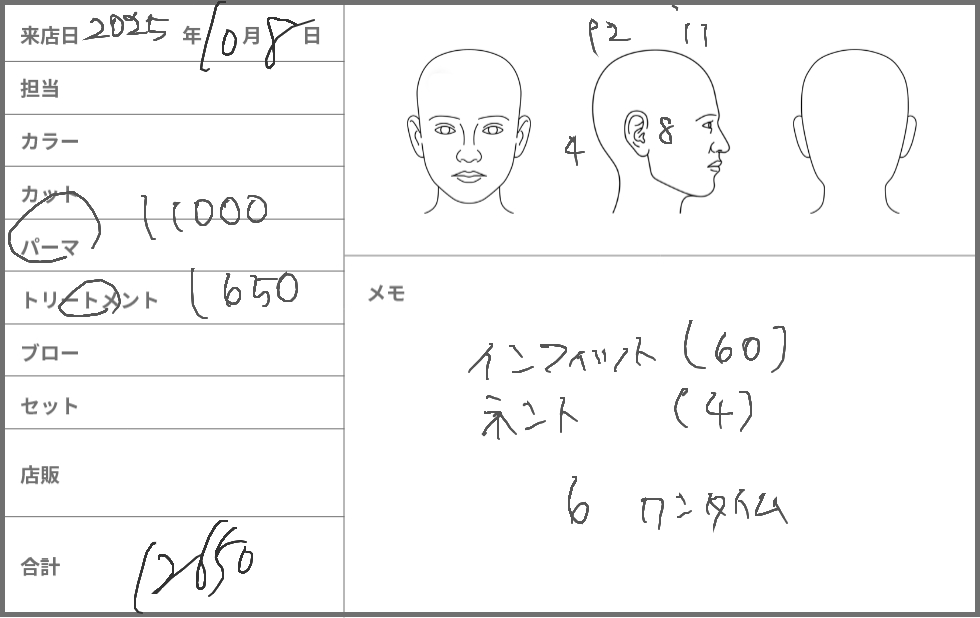 来店日 2025 年 10 月 8 日
担当
カラー
カット
11000
パーマ
トリートメント 1650
ブロー
セット
店販
合計 12650
12 11
4 8
メモ
インフィット (60)
ネント (4)
6 ワンタイム